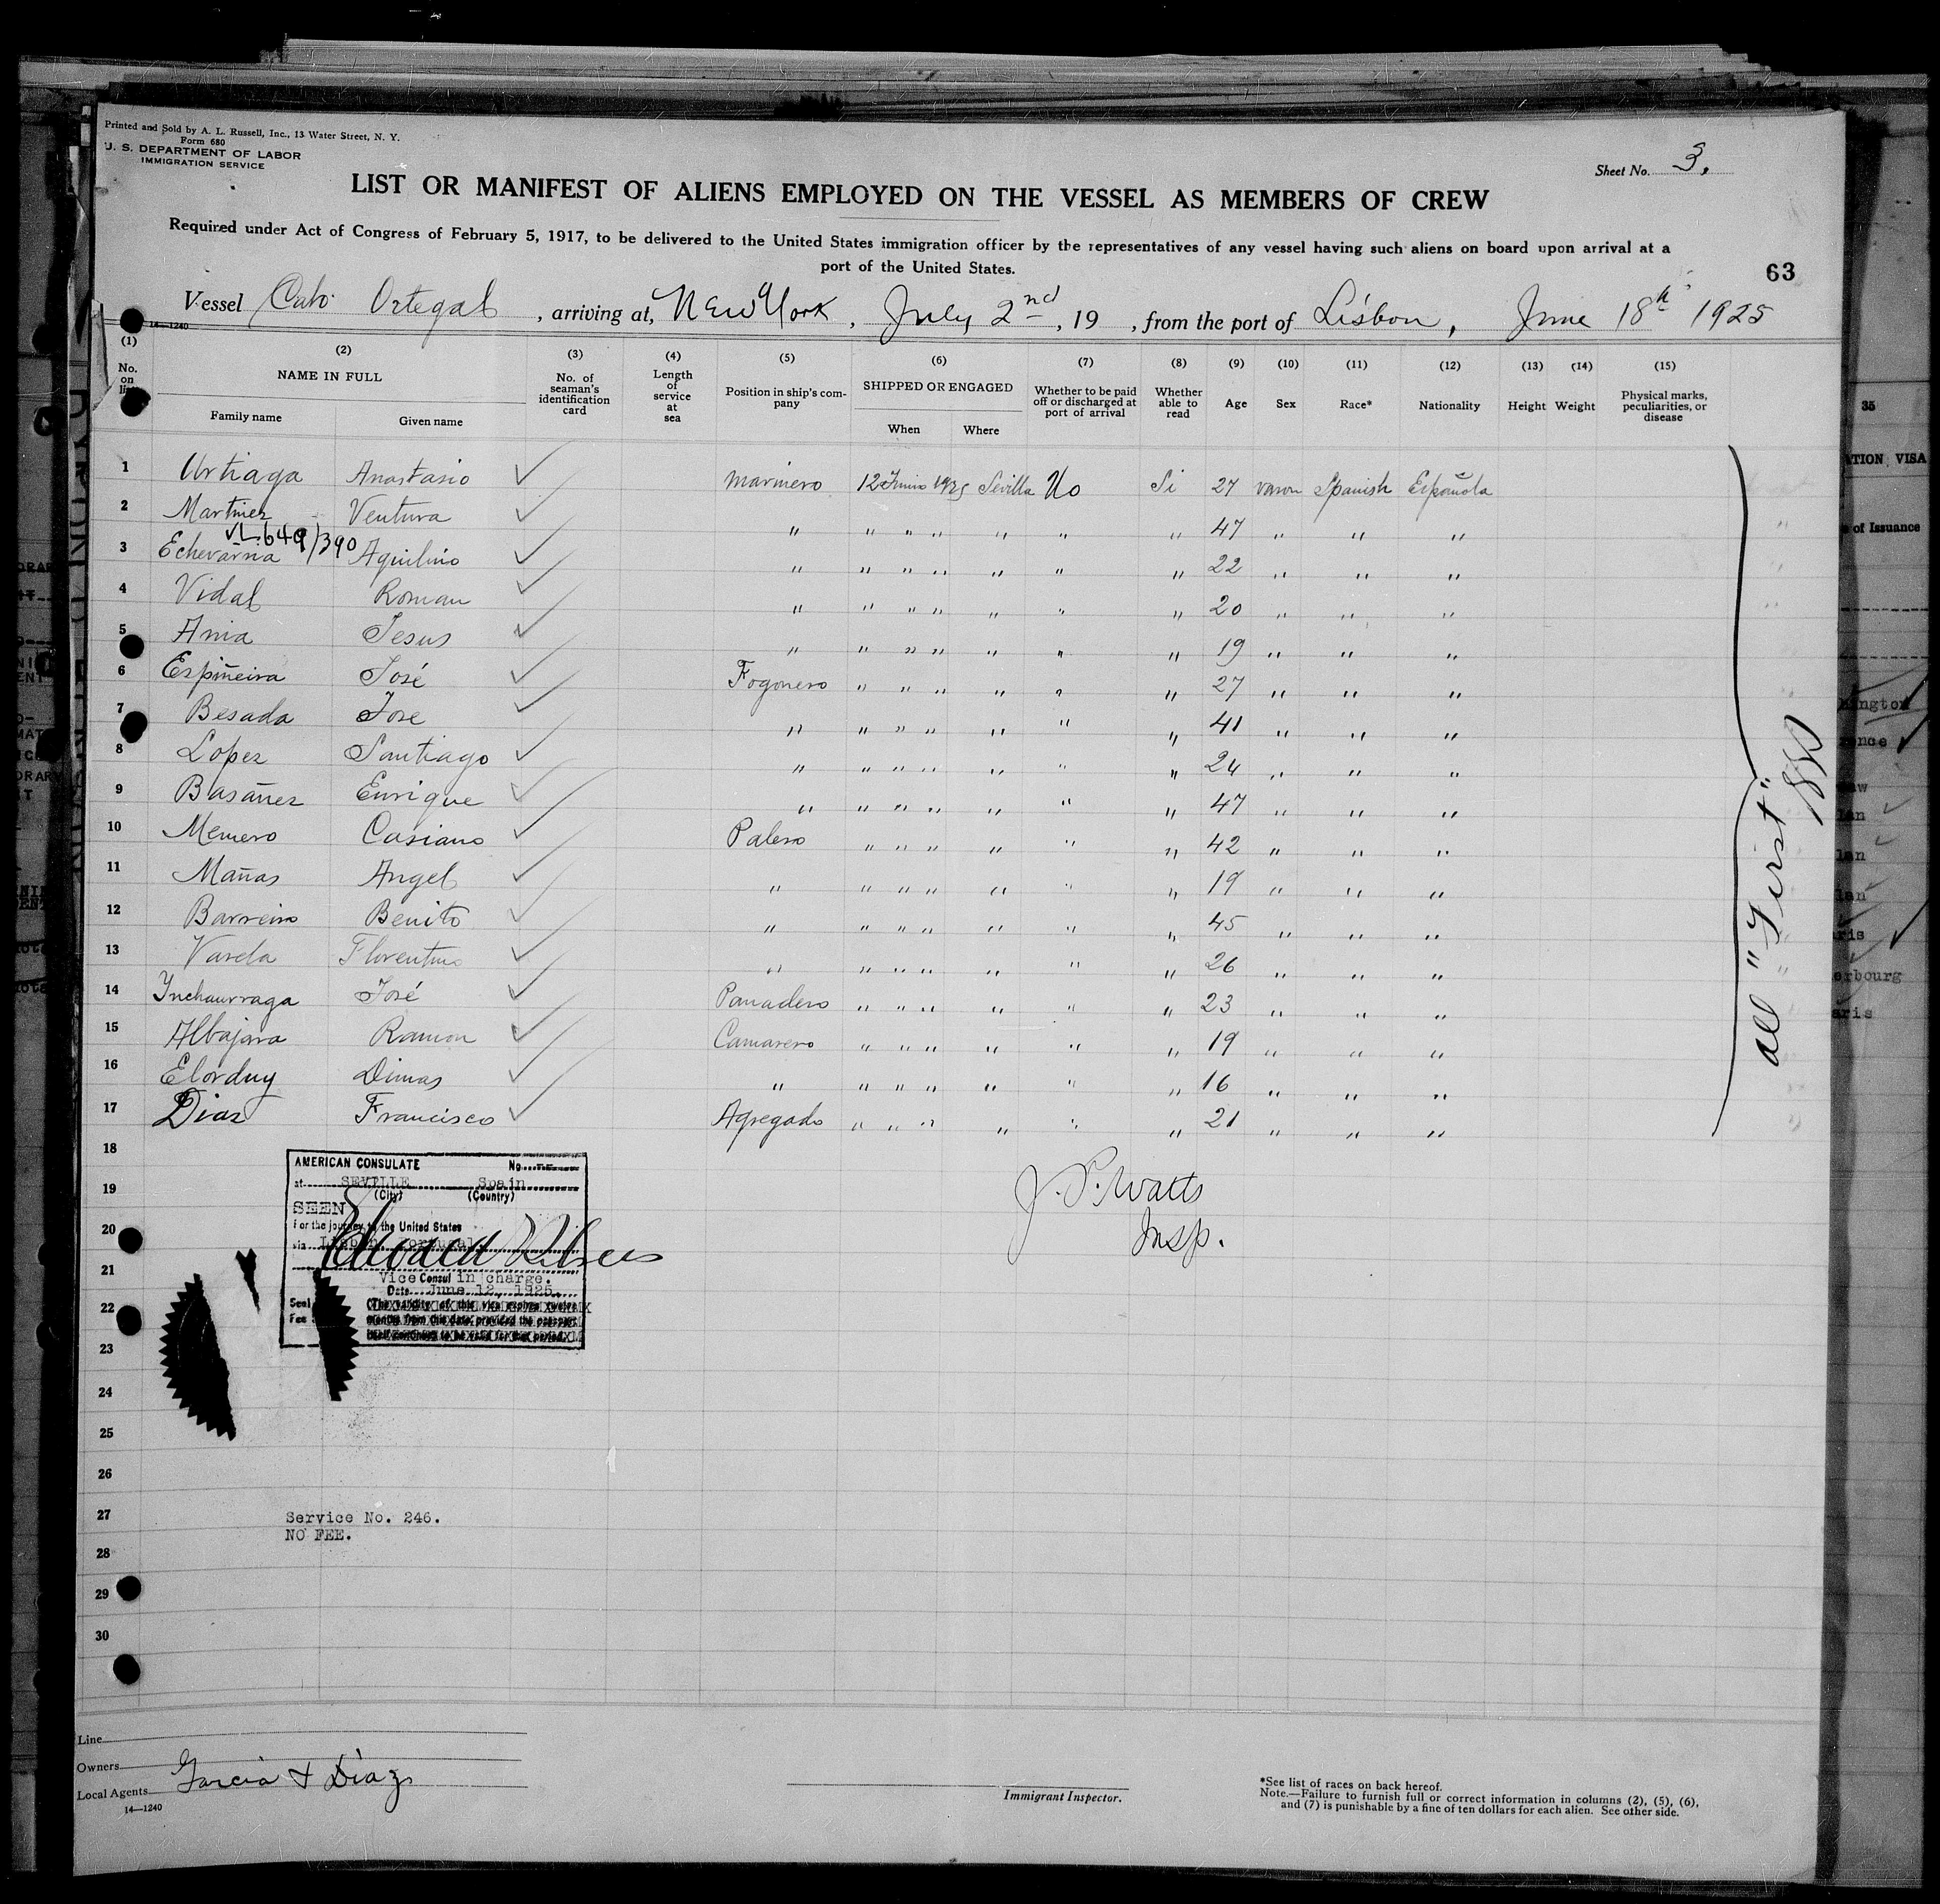 Printed and Sold by A. L. Russell, Inc., 13 Water Street, N. Y.
Form 680
U. S. DEPARTMENT OF LABOR
IMMIGRATION SERVICE
Sheet No. 3.
LIST OR MANIFEST OF ALIENS EMPLOYED ON THE VESSEL AS MEMBERS OF CREW
Required under Act of Congress of February 5, 1917, to be delivered to the United States immigration officer by the representatives of any vessel having such aliens on board upon arrival at a
port of the United States.
63
Vessel Cabo Ortegal, arriving at, New York, July 2nd, 19 , from the port of Lisbon, June 18th 1925
14-1240
(1) (2) (3) (4) (5) (6) (7) (8) (9) (10) (11) (12) (13) (14) (15)
No. on list NAME IN FULL Family name Given name No. of seaman's identification card Length of service at sea Position in ship's company SHIPPED OR ENGAGED When Where Whether to be paid off or discharged at port of arrival Whether able to read Age Sex Race* Nationality Height Weight Physical marks, peculiarities, or disease
1 Urtiaga Anastasio ✓ Marinero 12 Junio 1925 Sevilla No Si 27 Varon Spanish Española
2 Martinez Ventura ✓ " " " " " " " 47 " " "
VL. 649/390
3 Echevarria Aquilino ✓ " " " " " " " 22 " " "
4 Vidal Roman ✓ " " " " " " " 20 " " "
5 Ania Jesus ✓ " " " " " " " 19 " " "
6 Espiñeira José ✓ Fogonero " " " " " " 27 " " "
7 Besada Jose ✓ " " " " " " " 41 " " "
8 Lopez Santiago ✓ " " " " " " " 24 " " "
9 Basañez Enrique ✓ " " " " " " " 47 " " "
10 Casiano ✓ Palero " " " " " " 42 " " "
11 Mañas Angel ✓ " " " " " " " 19 " " "
12 Barreiro Benito ✓ " " " " " " " 45 " " "
13 Varela Florentino ✓ " " " " " " " 26 " " "
14 Ynchaurraga José ✓ Panadero " " " " " " 23 " " "
15 Albajara Ramon ✓ Camarero " " " " " " 19 " " "
16 Elorduy Dimas ✓ " " " " " " " 16 " " "
17 Diaz Francisco ✓ Agregado " " " " " " 21 " " "
all "First"
18
19
20
21
22
23
24
25
26
27
28
29
30
AMERICAN CONSULATE No.
at SEVILLE Spain
(City) (Country)
SEEN
For the journey to the United States
via Lisbon Portugal
Vice Consul in charge.
Date June 12, 1925.
Seal (The validity of this visa expires twelve
Fee months from this date, provided the passport
J. P. Watts
Insp.
Service No. 246.
NO FEE.
Line
Owners
Local Agents Garcia & Diaz
14—1240
Immigrant Inspector.
*See list of races on back hereof.
Note.—Failure to furnish full or correct information in columns (2), (5), (6),
and (7) is punishable by a fine of ten dollars for each alien. See other side.
35
VISA
of Issuance